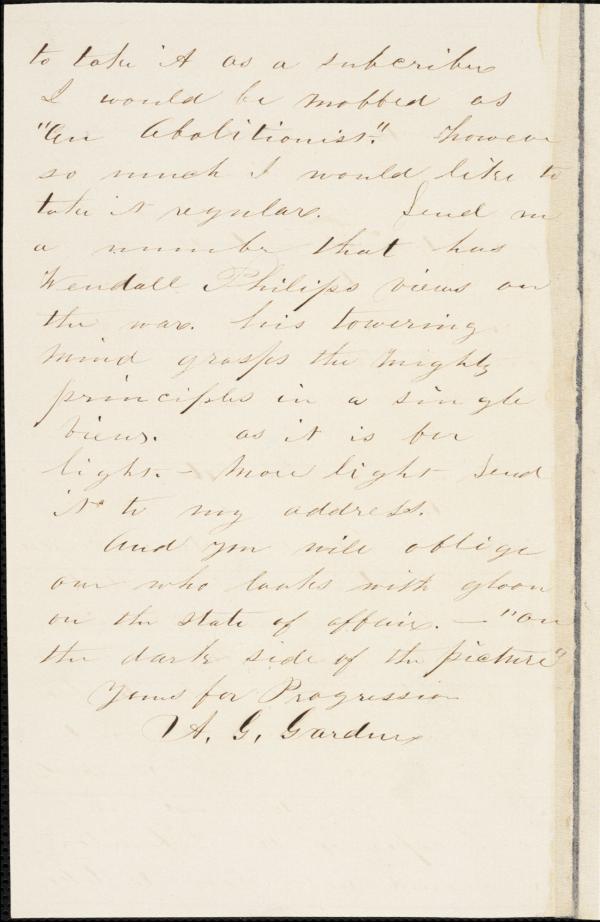 to take it as a subcriber
I would be mobbed as
"An Abolitionist." However
so much I would like to
take it regular. Send me
a number that has
Wendall Philips views on
the war. his towering
mind grasps the mighty
principles in a single
view. as it is for
light. - More light Send
it to my address.
And you will oblige
one who looks with gloom
on the state of affairs. — "on
the dark side of the picture"
Yours for Progression
A. G. Gardner